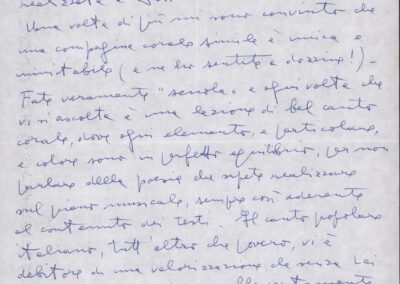 realizzata e
Una volta di più mi sono convinto che
una compagine corale simile è unica e
inimitabile (e ne ho sentite a dozzine!) –
Fate veramente "scuola" e ogni volta che
vi si ascolta è una lezione di bel canto
corale, dove ogni elemento, e particolare,
e colore sono in perfetto equilibrio, per non
parlare della poesia che sapete realizzare
sul piano musicale, sempre così aderente
al contenuto dei testi. Il canto popolare
italiano, tutt'altro che povero, vi è
debitore di una valorizzazione che senza Lei